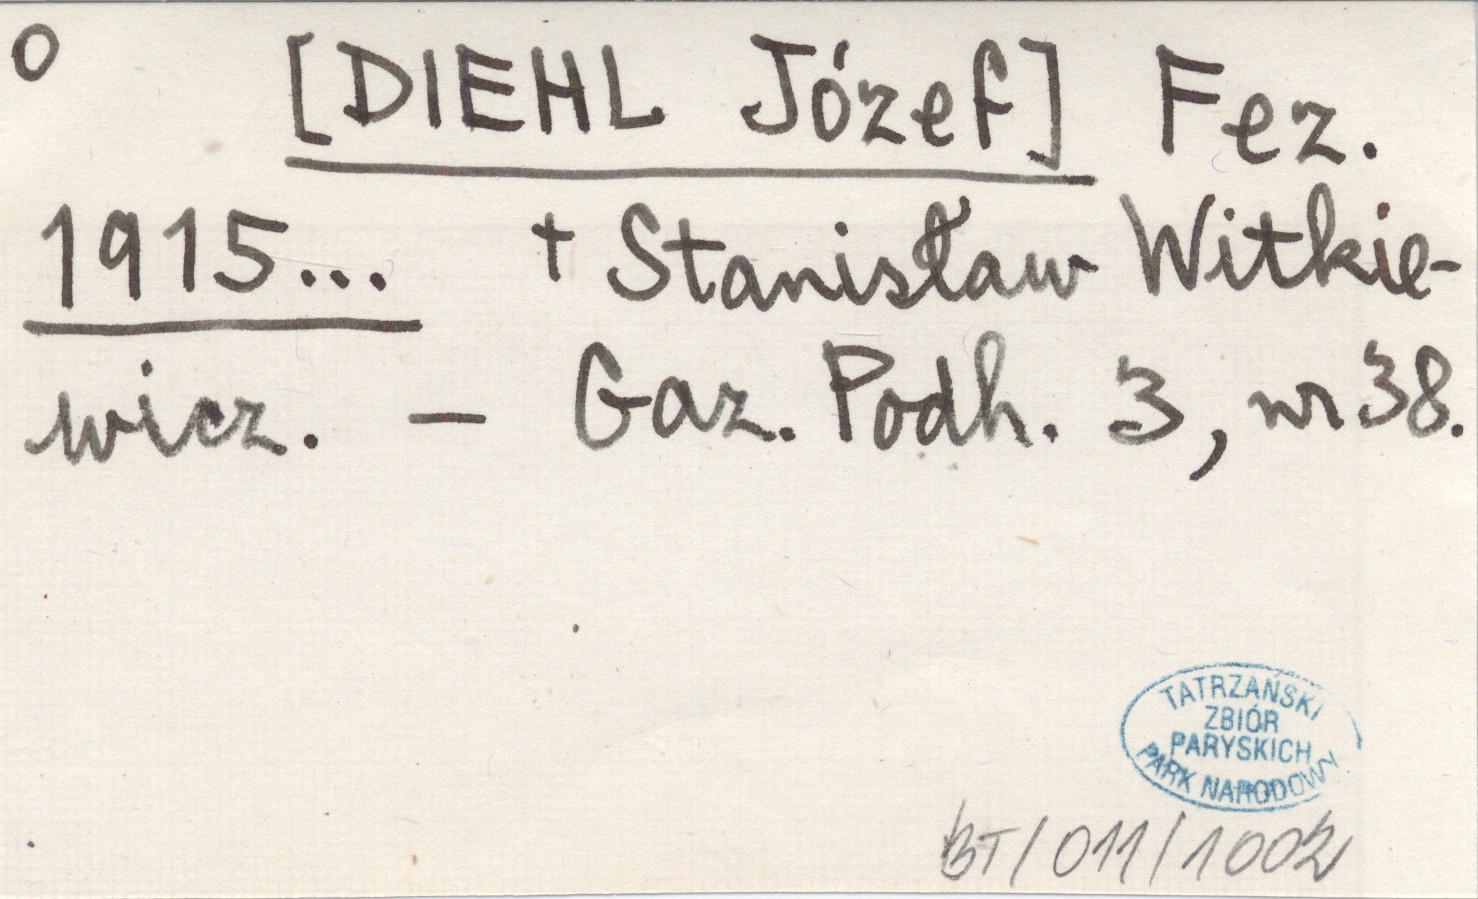 O [DIEHL Józef] Fez.
1915... † Stanisław Witkie-
wicz. — Gaz. Podh. 3, nr 38.
TATRZAŃSKI
ZBIÓR
PARYSKICH
PARK NARODOWY
BT/011/1002